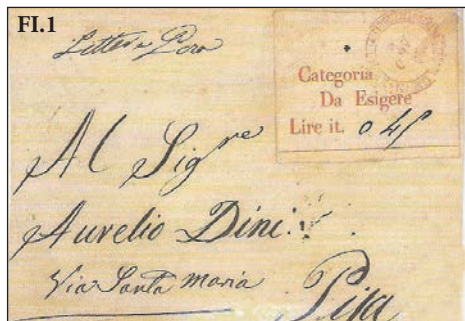 FI.1
Categoria
Da Esigere
Lire it. 0 45
Al Sig.re
Aurelio Dini
Via Santa Maria
Pisa